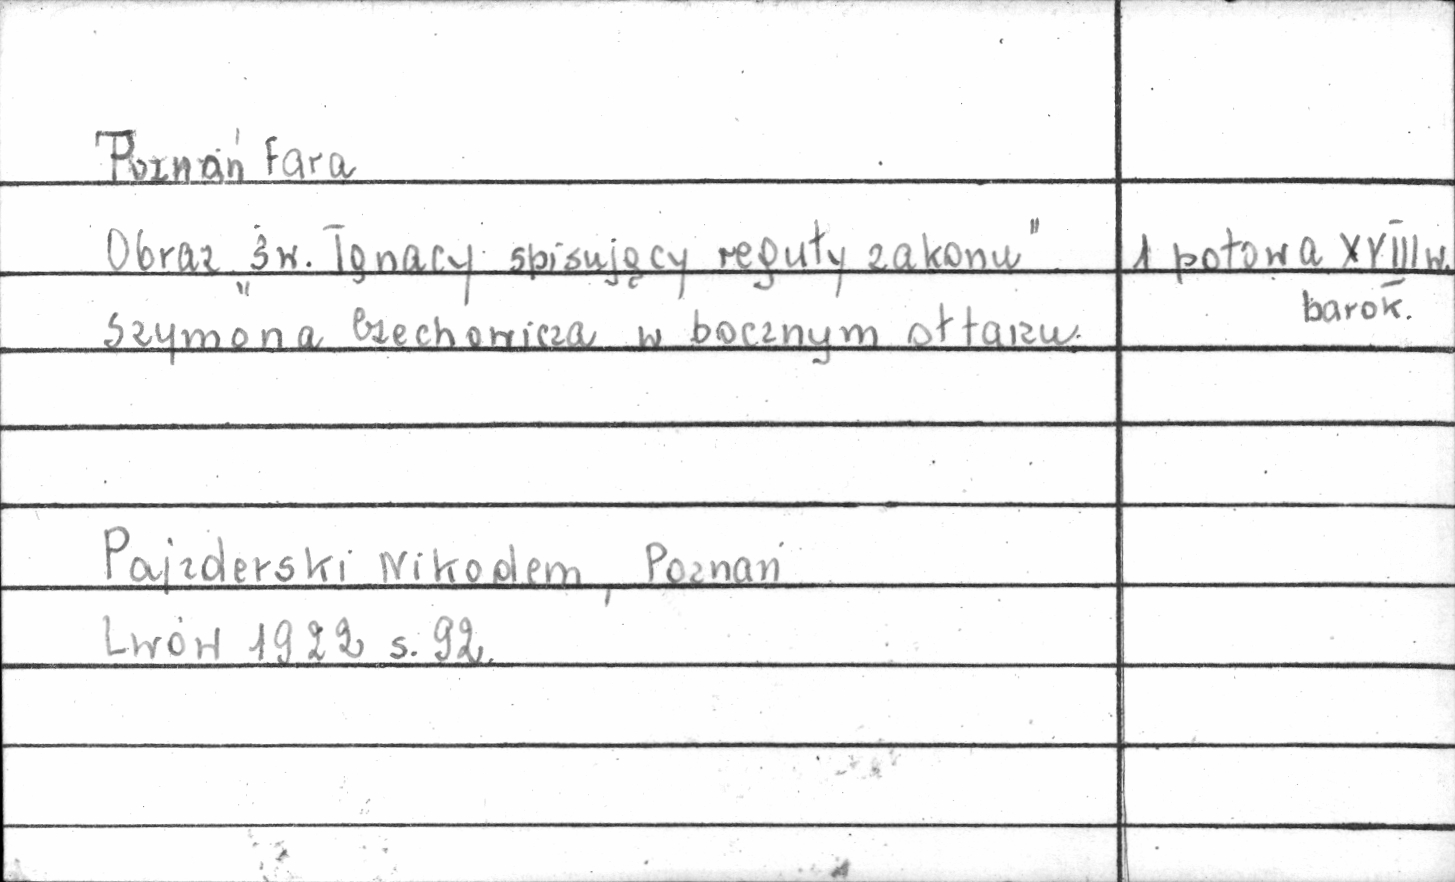 Poznań Fara
Obraz „św. Ignacy spisujący reguły zakonu" 1 połowa XVIII w.
barok.
Szymona Czechowicza w bocznym ołtarzu.
Pajzderski Nikodem, Poznań
Lwów 1922 s. 92.